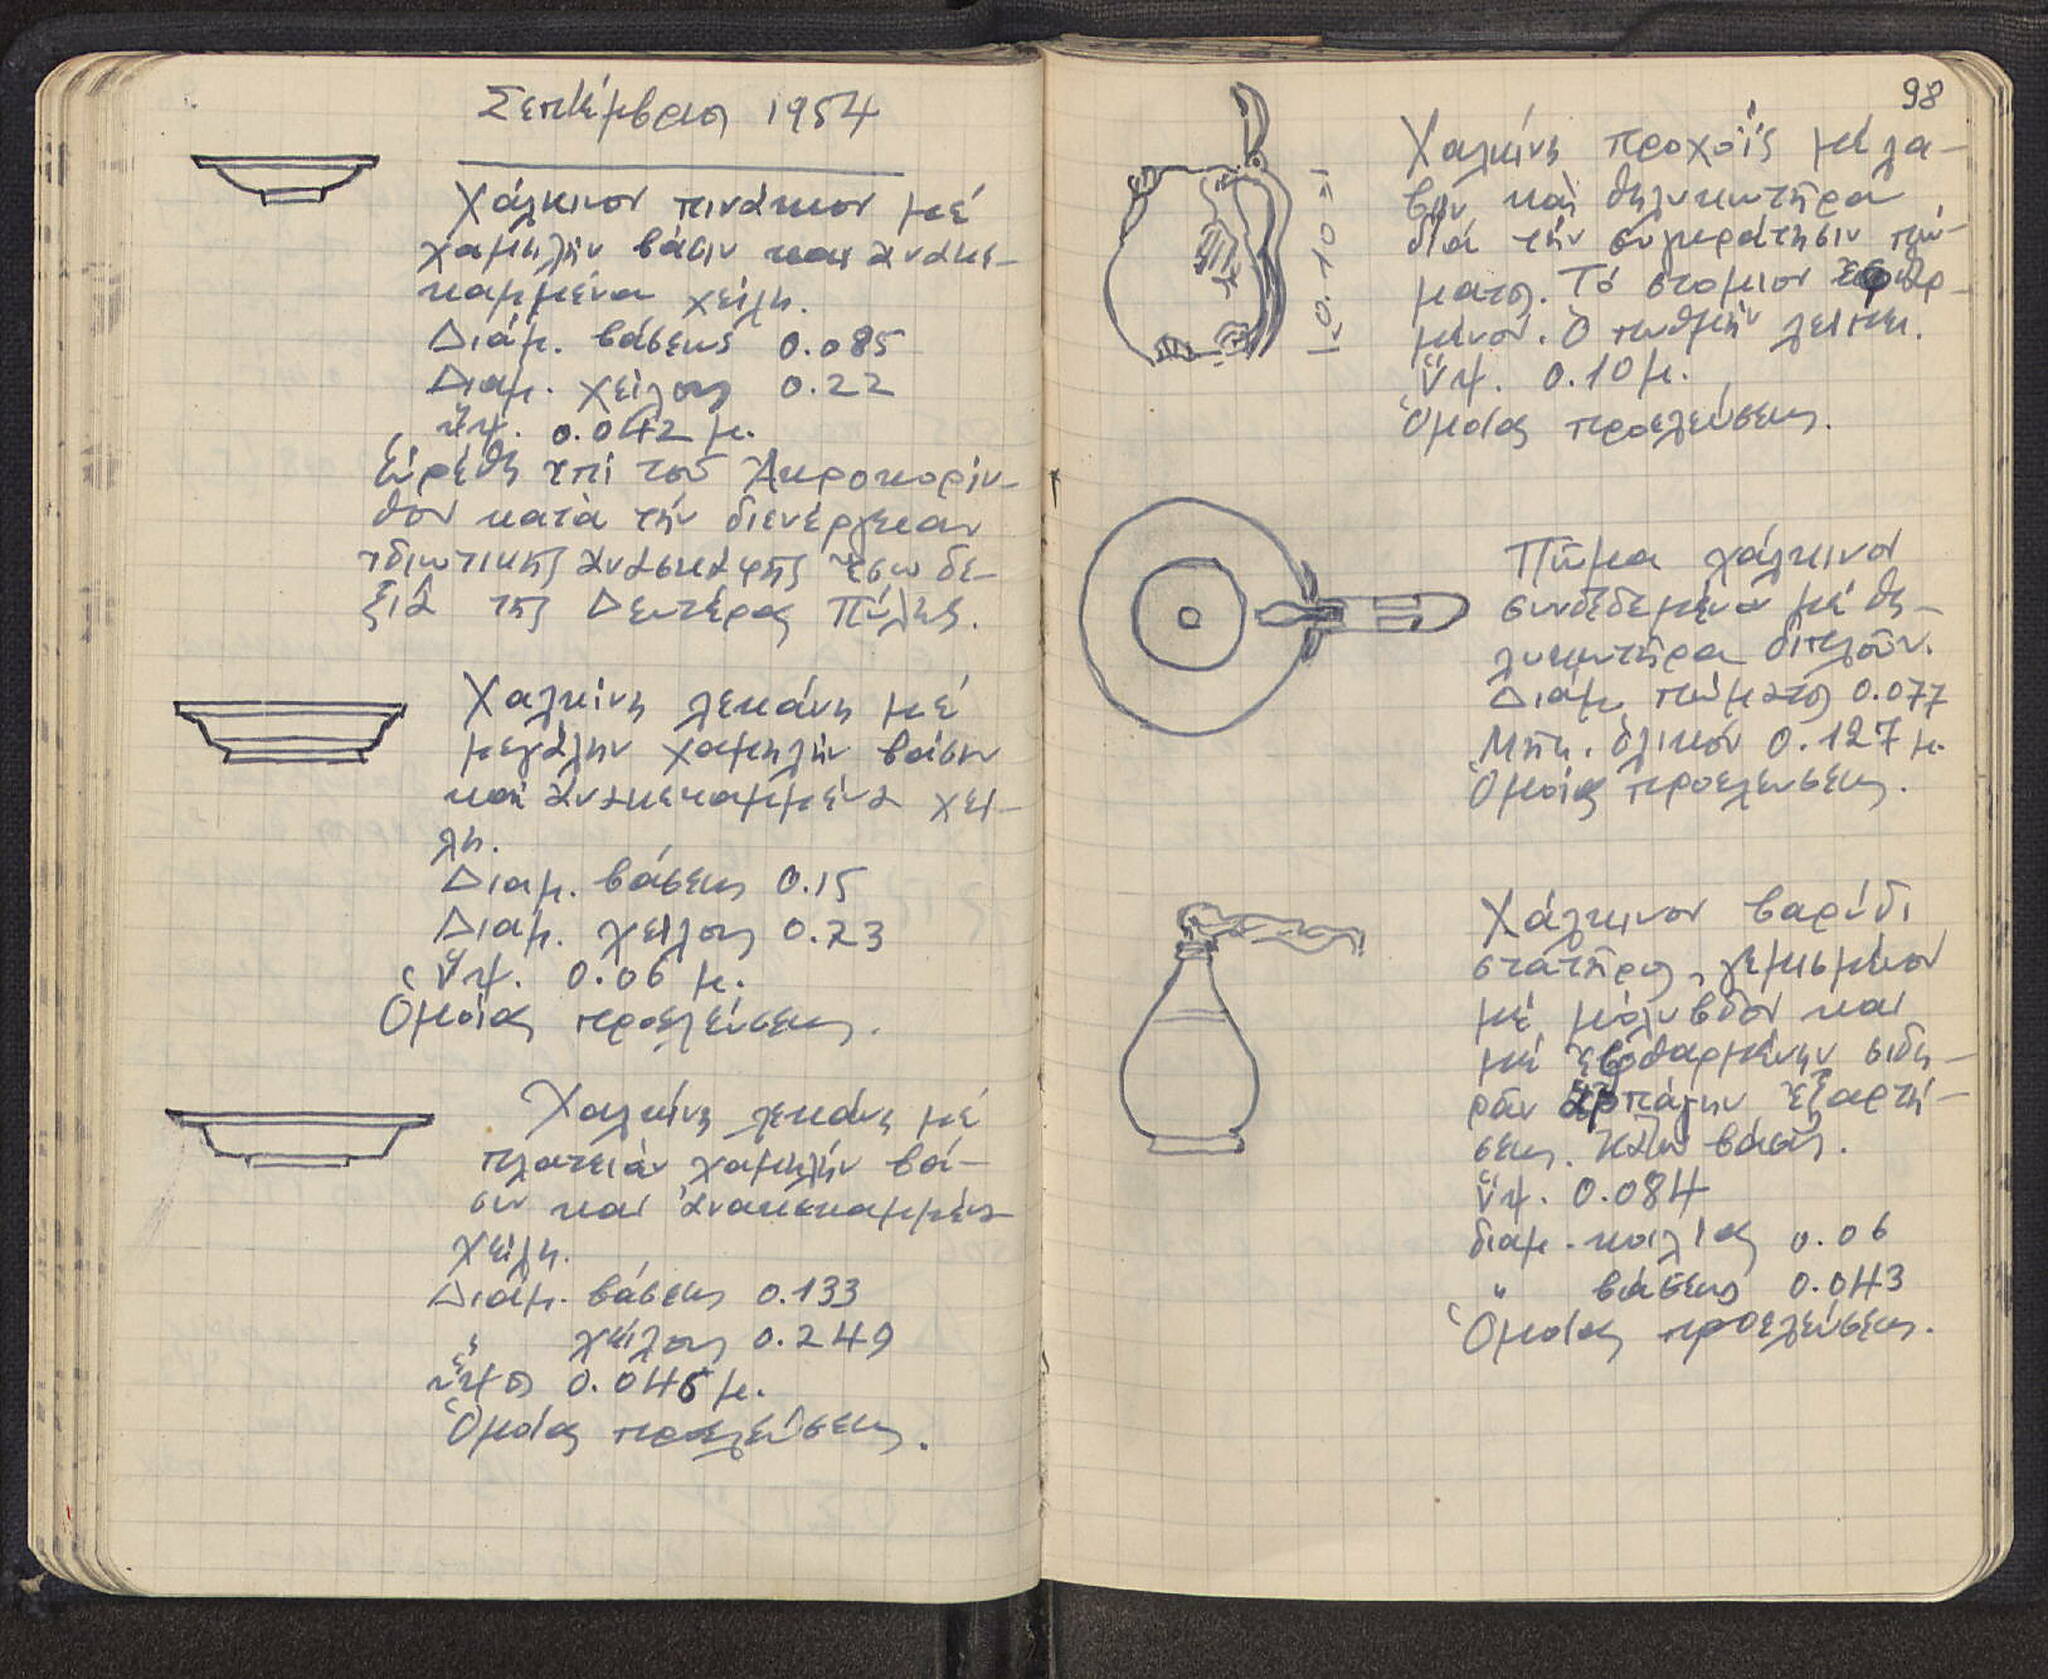 Σεπτέμβριος 1954
Χάλκινον πινάκιον μέ
χαμηλήν βάσιν και ἀνακε-
καμμένα χείλη.
Διάμ. βάσεως 0.085
Διαμ. χείλους 0.22
ὕψ. 0.042 μ.
Εὑρέθη ἐπί τοῦ Ἀκροκορίν-
θου κατὰ τήν διενέργειαν
ἰδιωτικῆς ἀνασκαφῆς ἔσω δε-
ξιᾶ τῆς Δευτέρας Πύλης.
Χαλκίνη λεκάνη μέ
μεγάλην χαμηλήν βάσιν
καί ἀνακεκαμμένα χεί-
λη.
Διαμ. βάσεως 0.15
Διαμ. χείλους 0.23
Ὕψ. 0.06 μ.
Ὁμοίας προελεύσεως.
Χαλκίνη λεκάνη μέ
πλατειάν χαμηλήν βά-
σιν και ἀνακεκαμμένα
χείλη.
Διάμ. βάσεως 0.133
" χείλους 0.249
ὕψος 0.045 μ.
Ὁμοίας προελεύσεως.
98
Χαλκίνη προχοΐς μέ λα-
βήν καί θηλυκωτῆρα
διά τήν συγκράτησιν πώ-
ματος. Τό στόμιον ἐφθαρ-
μένον. Ὁ πυθμήν λείπει.
Ὕψ. 0.10 μ.
Ὁμοίας προελεύσεως.
0.10
Πῶμα χάλκινον
συνδεδεμένον μέ θη-
λυκωτῆρα διπλοῦν.
Διάμ. πώματος 0.077
Μῆκ. ὁλικόν 0.127 μ.
Ὁμοίας προελεύσεως.
Χάλκινον βαρίδι
στατῆρος, γεμισμένον
μέ μόλυβδον και
μέ ἐφθαρμένην σιδη-
ρᾶν ἁρπάγην ἐξαρτή-
σεως. Κάτω βάσις.
Ὕψ. 0.084
διαμ. κοιλίας 0.06
" βάσεως 0.043
Ὁμοίας προελεύσεως.